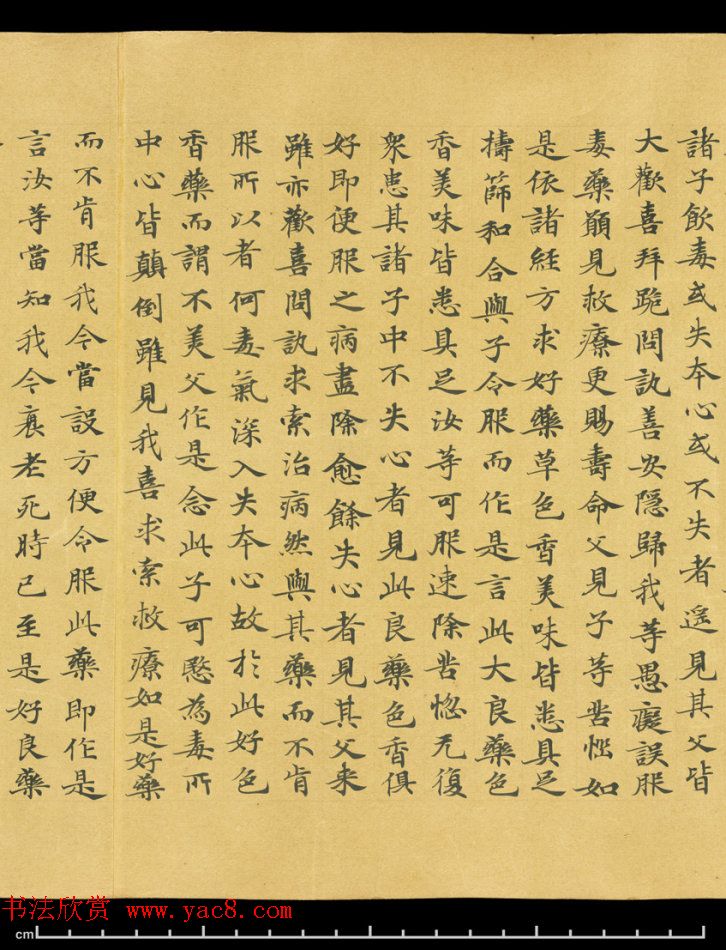 諸子飲毒或失本心或不失者遙見其父皆
大歡喜拜跪問訊善安隱歸我等愚癡誤服
毒藥願見救療更賜壽命父見子等苦惱如
是依諸經方求好藥草色香美味皆悉具足
擣篩和合與子令服而作是言此大良藥色
香美味皆悉具足汝等可服速除苦惱无復
衆患其諸子中不失心者見此良藥色香俱
好即便服之病盡除愈餘失心者見其父来
雖亦歡喜問訊求索治病然與其藥而不肯
服所以者何毒氣深入失本心故於此好色
香藥而謂不美父作是念此子可愍為毒所
中心皆顛倒雖見我喜求索救療如是好藥
而不肯服我今當設方便令服此藥即作是
言汝等當知我今衰老死時已至是好良藥
书法欣赏 www.yac8.com
cm